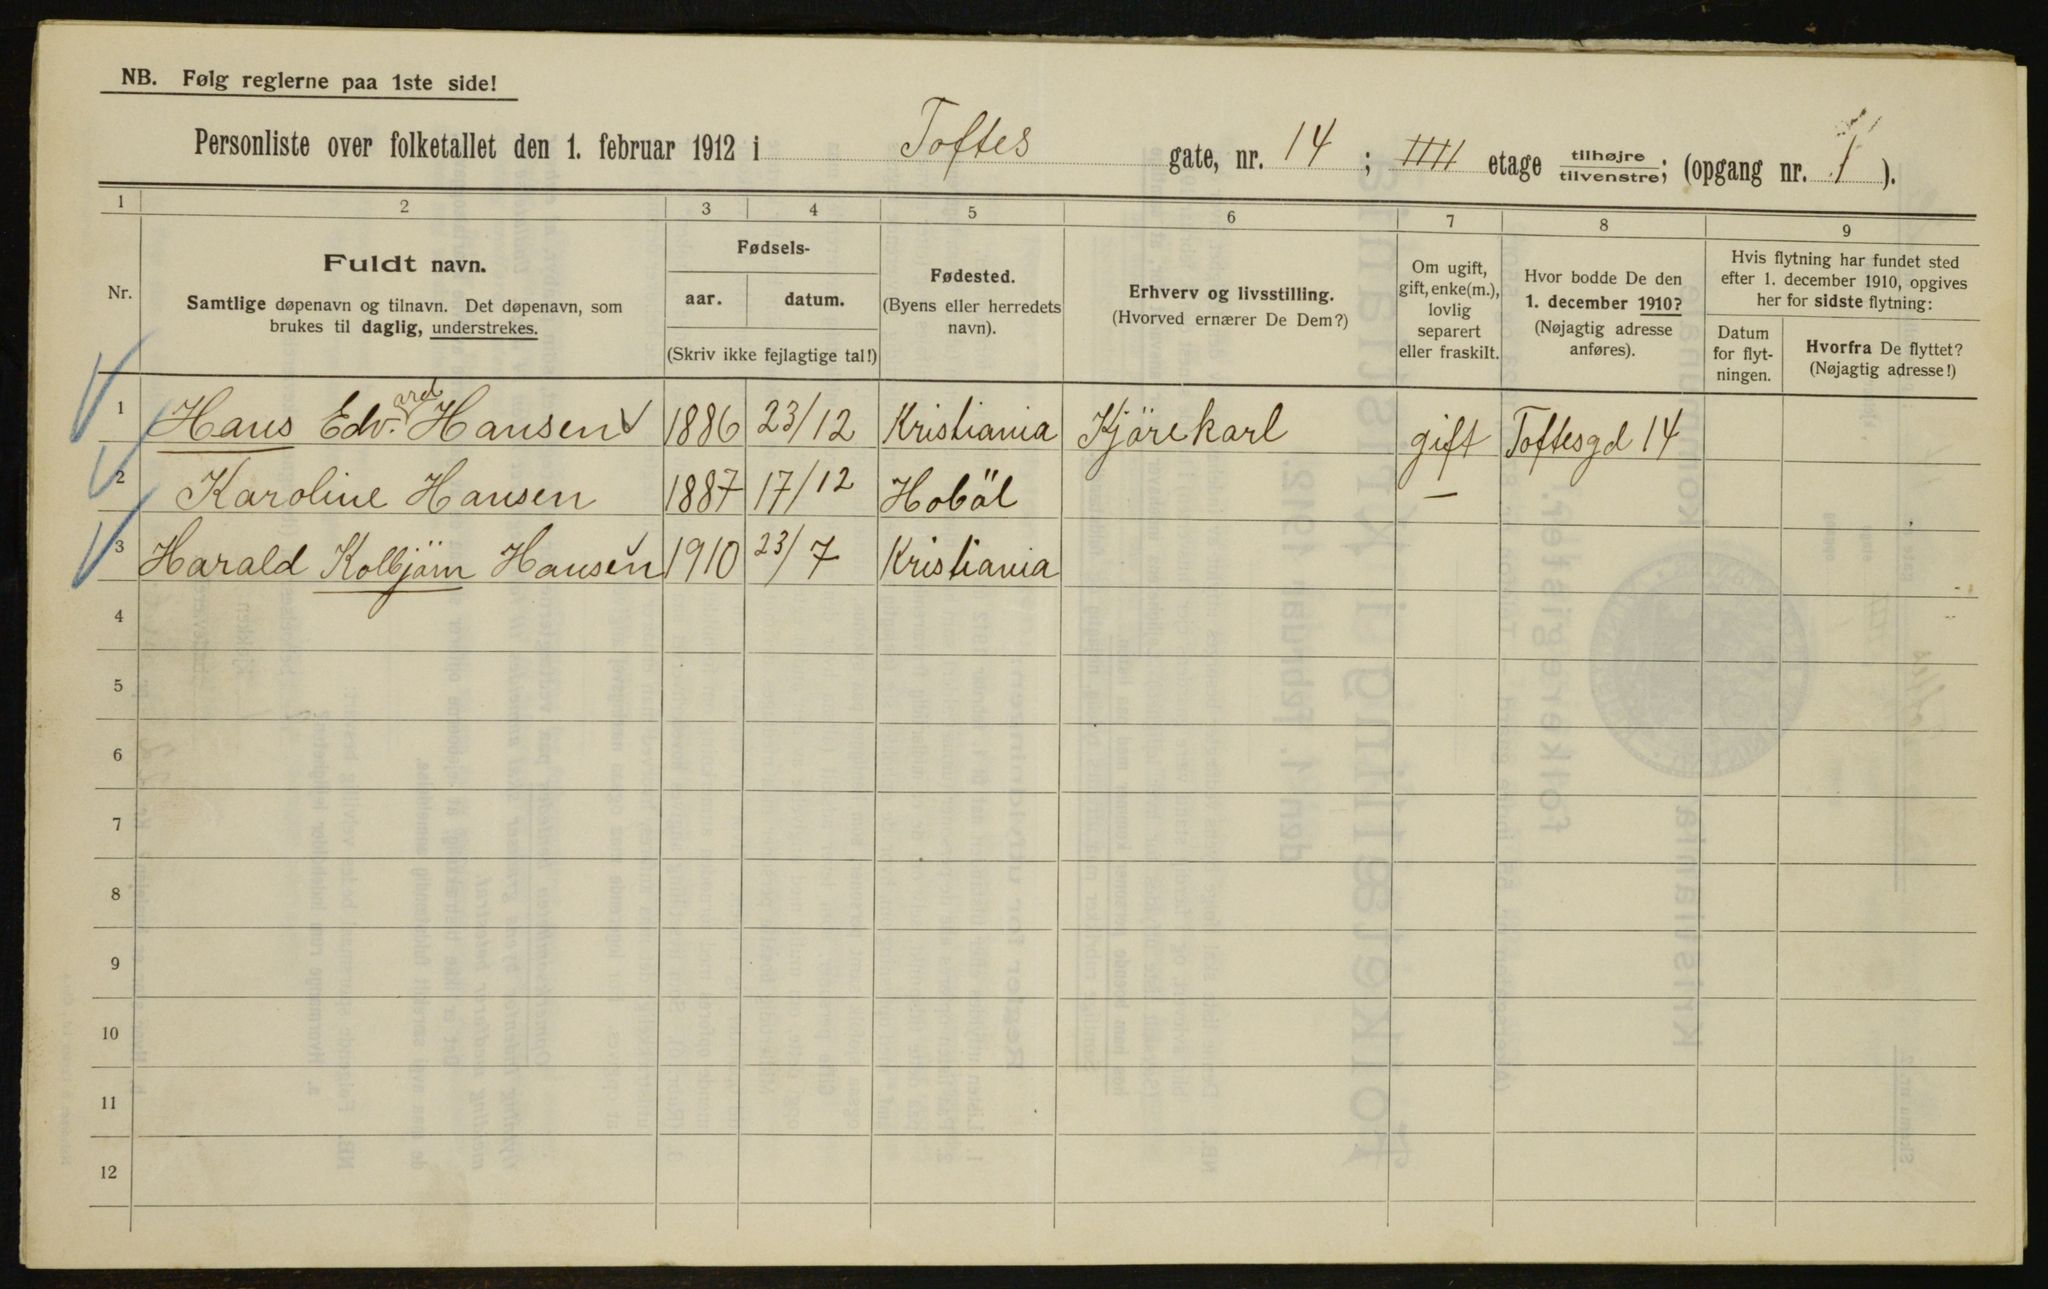 NB. Følg reglerne paa 1ste side!
Personliste over folketallet den 1. februar 1912 i Toftes gate, nr. 14 ; IIII etage tilhøjre tilvenstre; (opgang nr. 1 ).
1 2 3 4 5 6 7 8 9
Nr.
Fuldt navn.
Samtlige døpenavn og tilnavn. Det døpenavn, som
brukes til daglig, understrekes.
Fødsels-
aar. datum.
(Skriv ikke fejlagtige tal!)
Fødested.
(Byens eller herredets
navn).
Erhverv og livsstilling.
(Hvorved ernærer De Dem?)
Om ugift,
gift, enke(m.),
lovlig
separert
eller fraskilt.
Hvor bodde De den
1. december 1910?
(Nøjagtig adresse
anføres).
Hvis flytning har fundet sted
efter 1. december 1910, opgives
her for sidste flytning:
Datum
for flyt-
ningen.
Hvorfra De flyttet?
(Nøjagtig adresse!)
1 Hans Edv.ard Hansen 1886 23/12 Kristiania Kjörekarl gift Toftesgd 14
2 Karoline Hansen 1887 17/12 Hoböl —
3 Harald Kolbjörn Hansen 1910 23/7 Kristiania
4
5
6
7
8
9
10
11
12